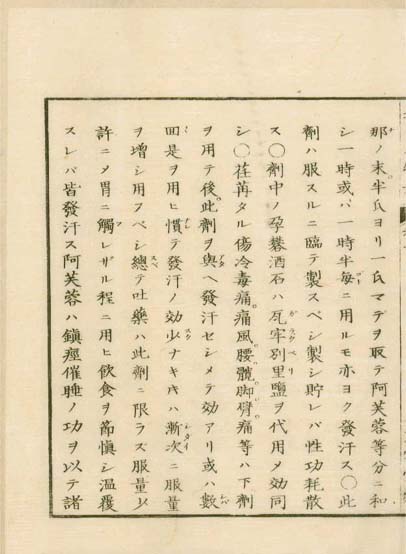 那ノ末半氏ヨリ一氏マデヲ取テ阿芙蓉等分ニ和
シ一時或ハ一時半毎ニ用ルモ亦ヨク發汗ス〇此
劑ハ服スルニ臨テ製スベシ製シ貯レバ性功耗散
ス〇劑中ノ孕礬酒石ハ瓦牢別里鹽ヲ代用メ効同
シ〇荏苒タル傷冷毒痛痛風腰髖脚臂痛等ハ下劑
ヲ用テ後此劑ヲ與ヘ發汗セシメテ効アリ或ハ數
回是ヲ用ヒ慣テ發汗ノ効少ナキ𪜈ハ漸次ニ服量
ヲ增シ用フベシ總テ吐藥ハ此劑ニ限ラズ服量少
許ニメ胃ニ觸レザル程ニ用ヒ飲食ヲ節愼シ溫覆
スレバ皆發汗ス阿芙蓉ハ鎭痙催睡ノ功ヲ以テ諸